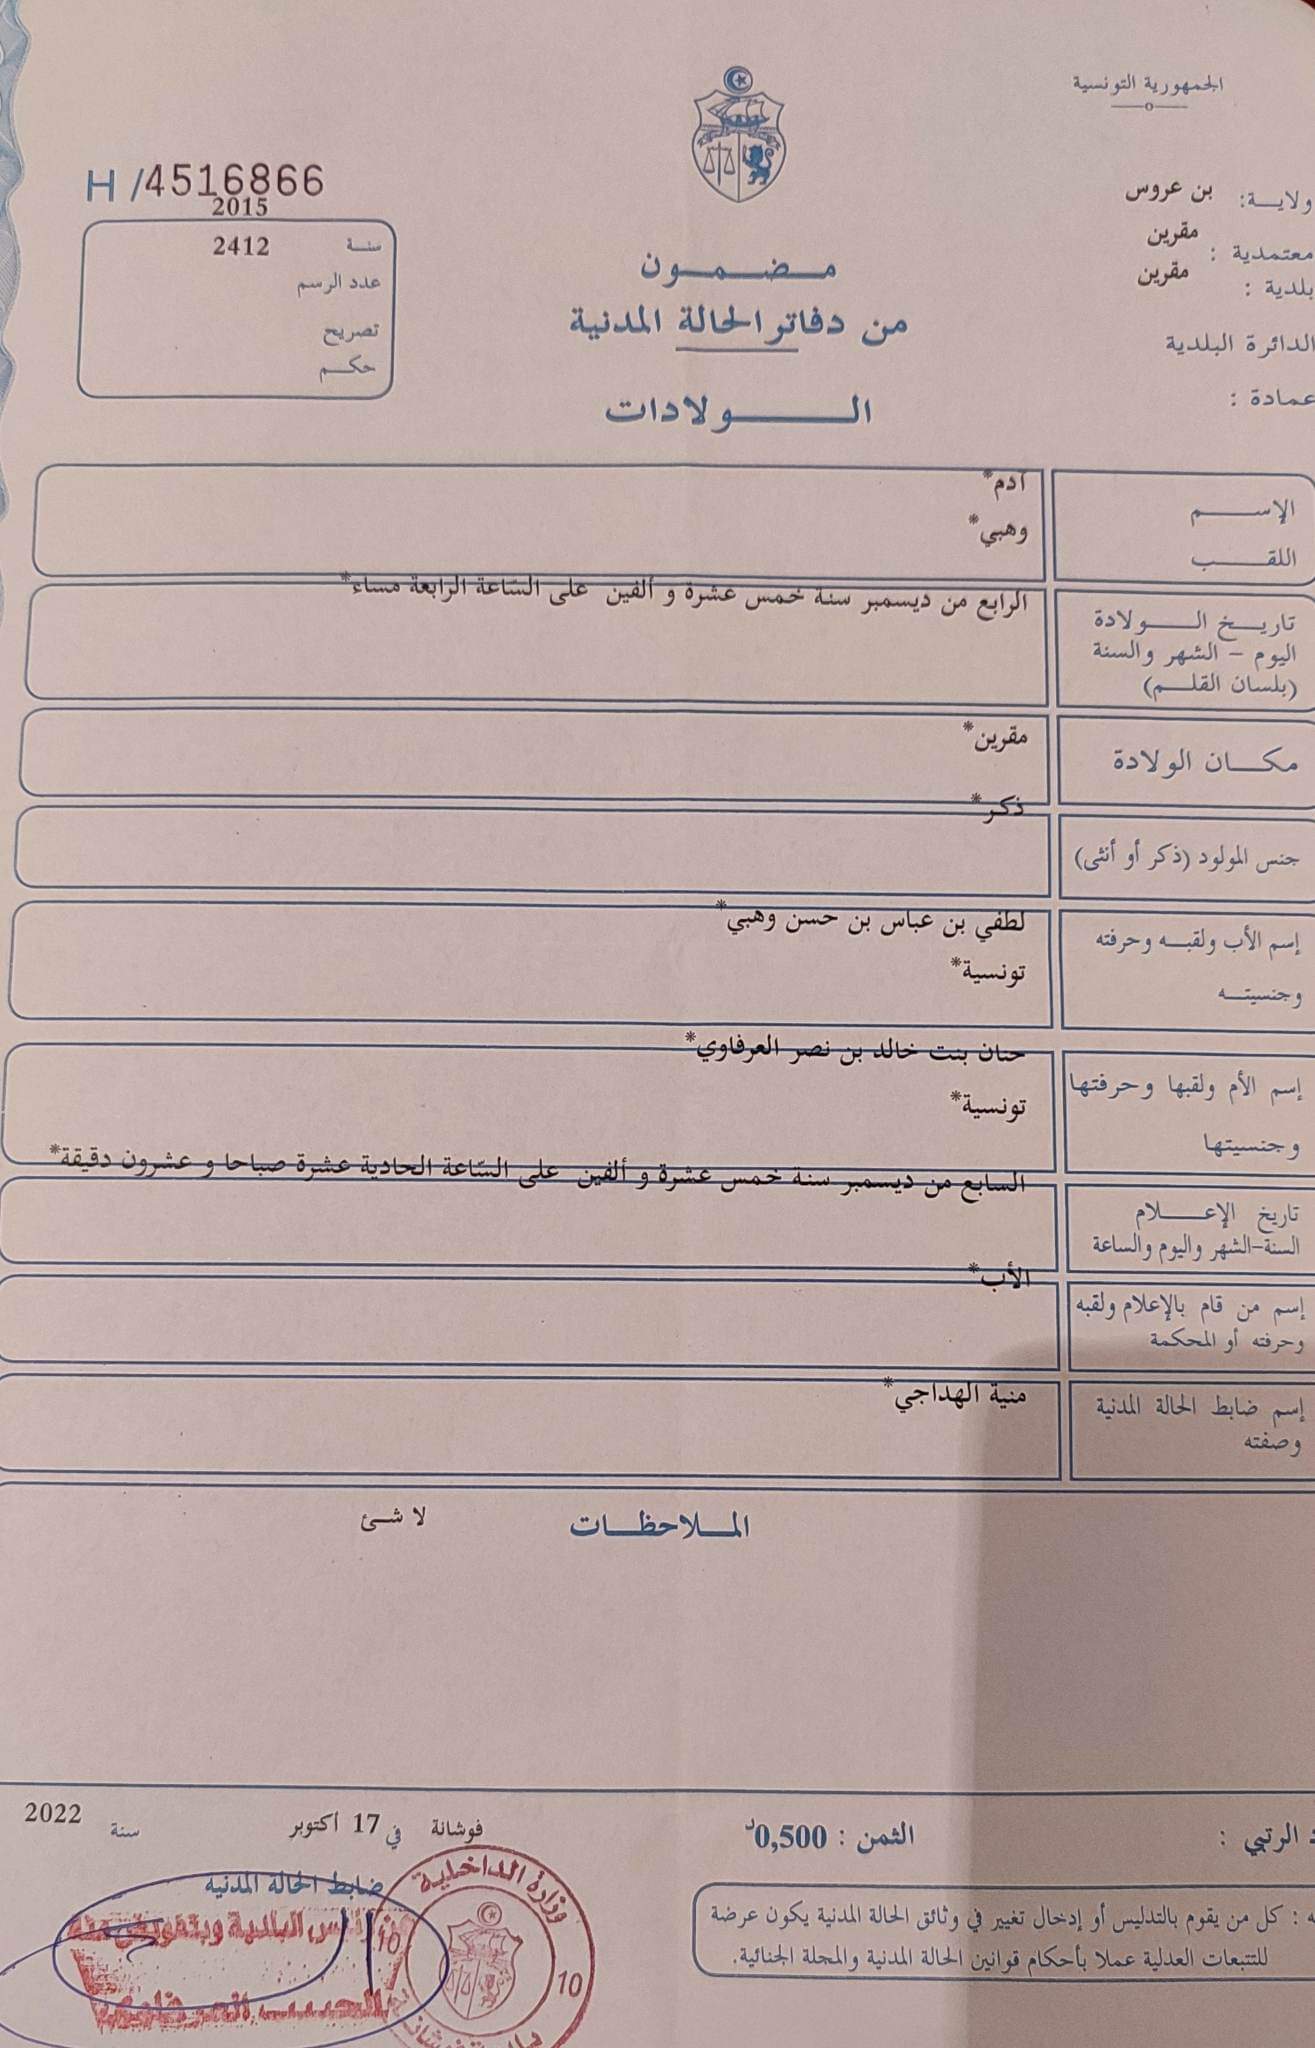 الجمهورية التونسية
ولايـــة: بن عروس
معتمدية : مقرين
بلدية : مقرين
الدائرة البلدية
عمادة :
H /4516866
2015
سنـة 2412
عدد الرسم
تصريح
حكـم
مـضـمـون
من دفاتر الحالة المدنية
الـــولادات
الإســـم آدم*
اللقـــب وهبي*
تاريـخ الـــولادة
اليوم - الشهر والسنة
(بلسان القلـم)
الرابع من ديسمبر سنة خمس عشرة و ألفين على السّاعة الرابعة مساء*
مكـــان الولادة مقرين*
جنس المولود (ذكر أو أنثى) ذكر*
إسم الأب ولقبـه وحرفته لطفي بن عباس بن حسن وهبي*
وجنسيتـه تونسية*
إسم الأم ولقبها وحرفتها حنان بنت خالد بن نصر العرفاوي*
وجنسيتها تونسية*
تاريخ الإعـــلام
السنة-الشهر واليوم والساعة
السابع من ديسمبر سنة خمس عشرة و ألفين على السّاعة الحادية عشرة صباحا و عشرون دقيقة*
إسم من قام بالإعلام ولقبه
وحرفته أو المحكمة
الأب*
إسم ضابط الحالة المدنية
وصفته
منية الهداجي*
المـلاحظـات لا شئ
الرتبي :
الثمن : 0,500د
فوشانة في 17 أكتوبر سنة 2022
ضابط الحالة المدنية
كل من يقوم بالتدليس أو إدخال تغيير في وثائق الحالة المدنية يكون عرضة
للتتبعات العدلية عملا بأحكام قوانين الحالة المدنية والمجلة الجنائية.
وزارة الداخلية
10
10
رئيس البلدية وبتفويض منه